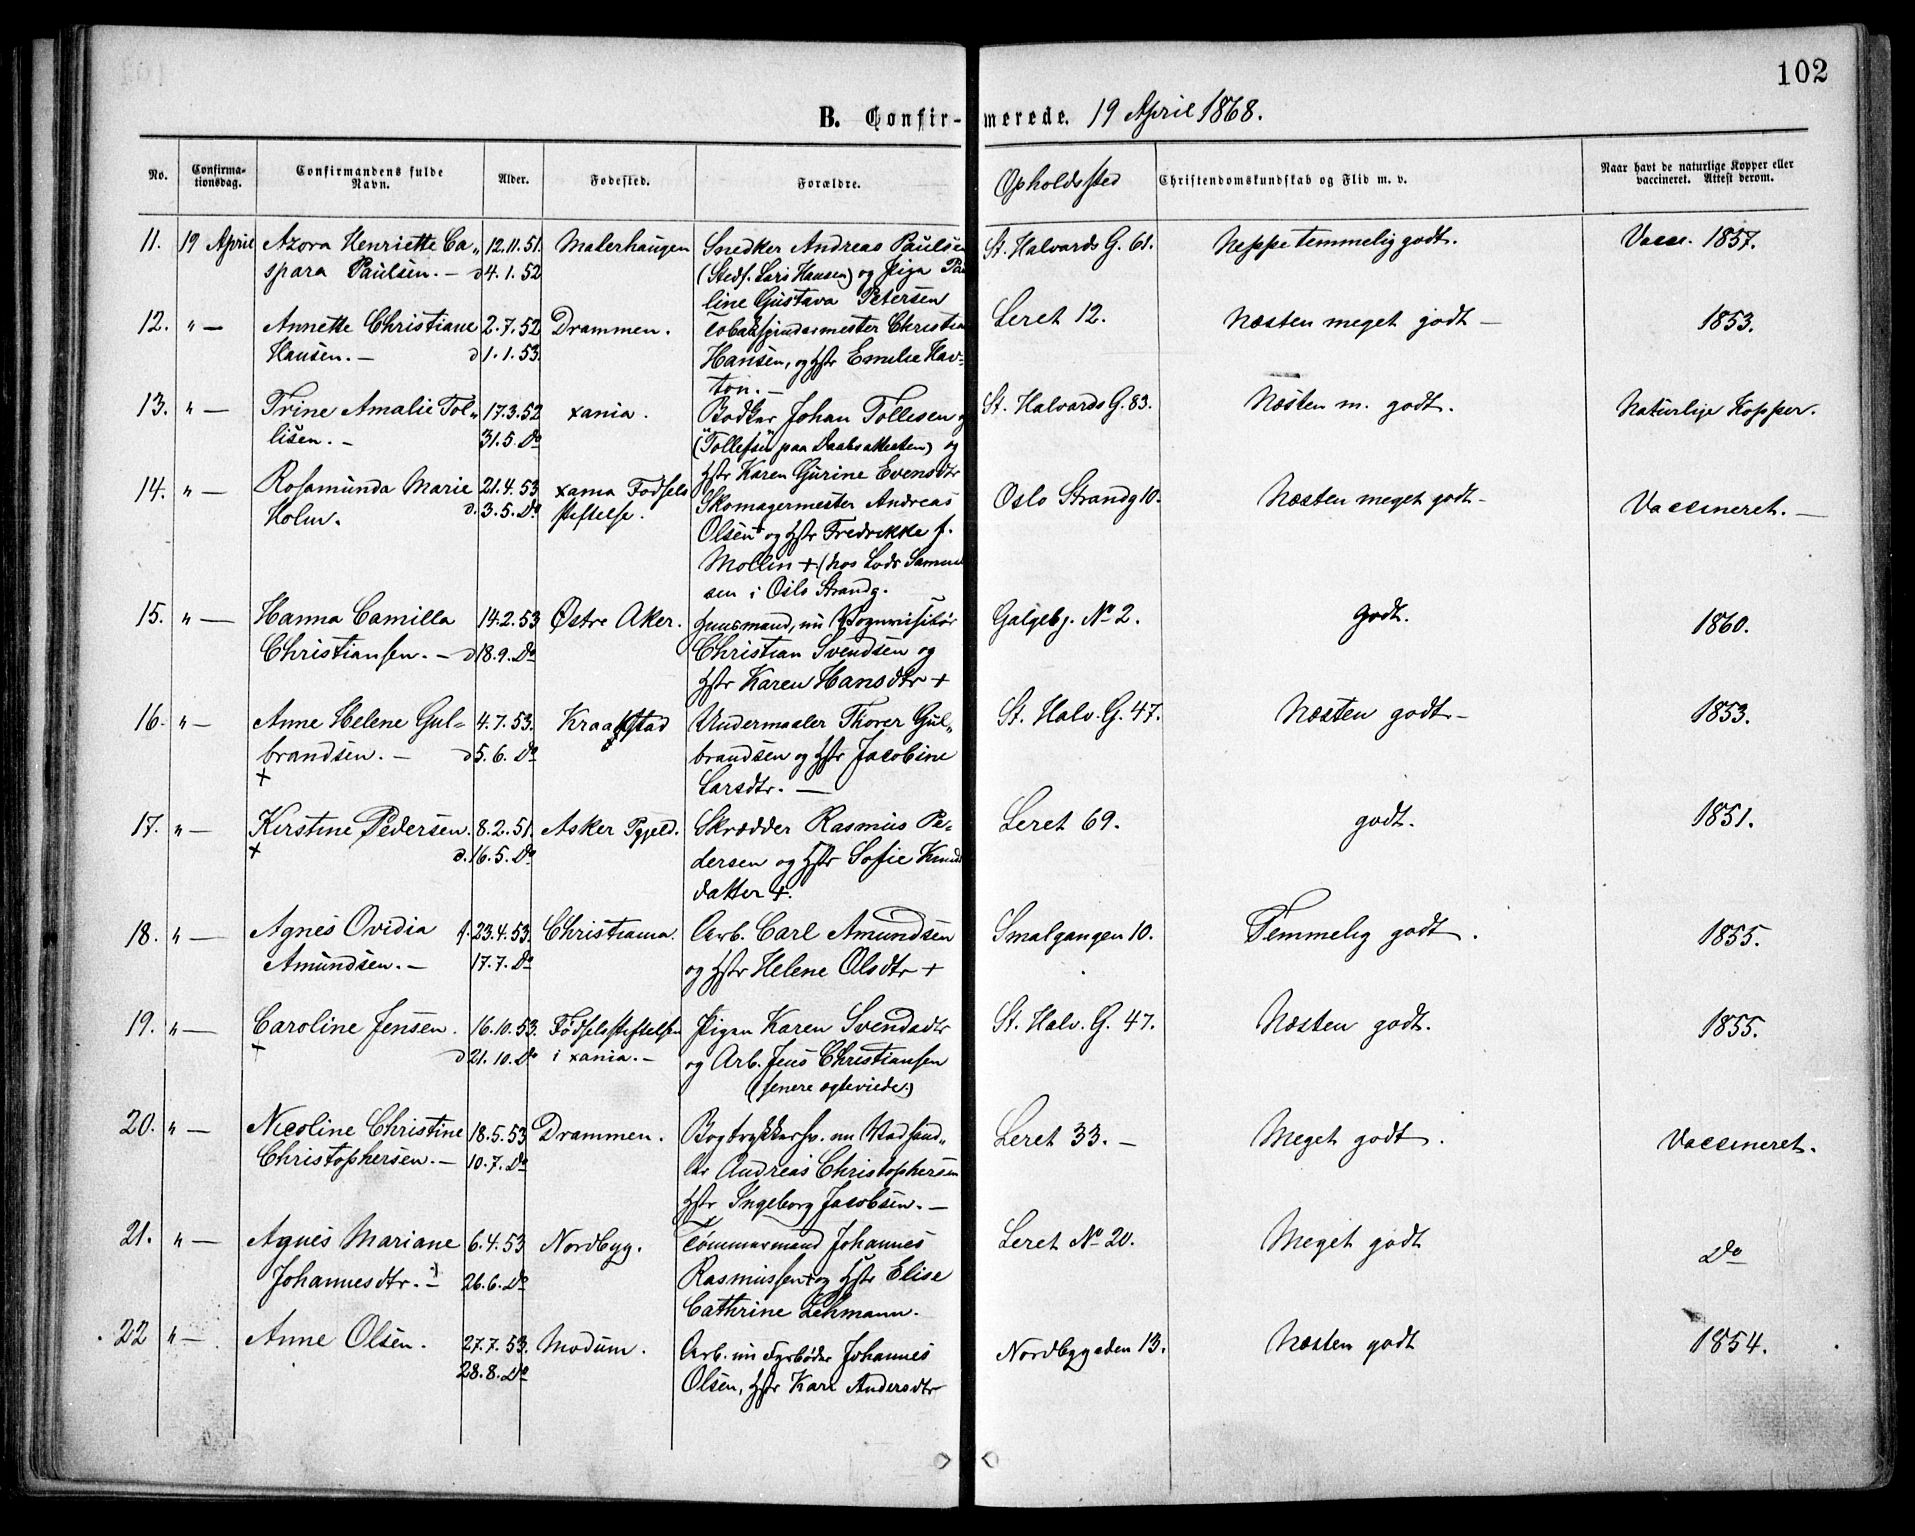 102
B. Confirmerede. 19 April 1868.
No. Confirmationsdag. Confirmandens fulde Navn. Alder. Fødested. Forældre. Opholdssted Christendomskundskab og Flid m. v. Naar havt de naturlige Kopper eller vaccineret. Attest derom.
11. 19 April Azora Henriette Ca- 12.11.51. Malerhaugen Snedker Andreas Paulsen St. Halvards G. 61. Neppe temmelig godt. Vacc. 1857.
spara Paulsen. - d 4.1.52 (Stedf. Lars Hansen) og Pige Pau
line Gustava Petersen
12. " — Annette Christiane 2.7.52 Drammen. Tobakspindermester Christian Leret 12. Næsten meget godt - 1853.
Hansen. - d 1.1.53. Hansen, og Hstr Emilie Hav-
ton. -
13. " — Trine Amalie Tol- 17.3.52 xania. Bødker Johan Tollesen og St. Halvards G. 83. Næsten m. godt. Naturlige Kopper.
lisen. - 31.5. Do ("Tollefsen" paa Daabsattesten) og
Hstr Karen Gurine Evensdtr
14. " — Rosamunda Marie 21.4.53 xania Fødsels Skomagermester Andreas Oslo Strandg 10. Næsten meget godt - Vaccineret. —
Holm. d. 3.5. Do stiftelse. Olsen + og Hstr Fredrikke f.
Mollin + (hos Lods Samuel
sen i Oslo Strandg.
15. " — Hanna Camilla 14.2.53 Østre Aker. Huusmand, nu Vognvisitør Galgebg. No 2. Godt. 1860.
Christiansen. - d 18.9. Do Christian Svendsen og
Hstr Karen Hansdtr +
16. " — Anne Helene Gul- 4.7.53. Kraakstad Undermaaler Thorer Gul- St. Halv. G. 47. Næsten godt - 1853.
brandsen. - d 5.6. Do brandsen og Hstr Jacobine
+ Larsdtr. —
17. " — Kirstine Pedersen. 8.2.51. Asker Pgjeld. Skrædder Rasmus Pe- Leret 69. godt. 1851.
+ d. 16.5. Do dersen og Hstr Sofie Knuds
datter +.
18. " — Agnes Ovidia f. 23.4.53. Christiania. Arb. Carl Amundsen Smalgangen 10. Temmelig godt. 1855.
Amundsen. - 17.7. Do og Hstr Helene Olsdtr +
19. " — Caroline Jensen. 16.10.53. Fødselsstiftelsen Pigen Karen Svendsdtr St. Halv. G. 47. Næsten godt. 1855.
+ d 21.10. Do i xania. - og Arb. Jens Christiansen
(senere egteviede.)
20. " — Nicoline Christine 18.5.53 Drammen. Bogtrykkersv. nu Vadhand- Leret 33. - Meget godt. Vaccineret.
Christophersen. - 10.7. Do ler Andreas Christophersen
Hstr Ingeborg Jacobsen. -
21. " — Agnes Mariane 6.4.53 Nordbyg. Tømmermand Johannes Leret No 20. Meget godt Do
Johannesdtr. - 26.6. Do Rasmussen + og Hstr Elise
Cathrine Lehmann.
22 " — Anne Olsen. 27.7.53. Modum. Arb. nu Fyrbøder Johannes Nordbygaden 13. Næsten godt 1854.
28.8. Do Olsen, Hstr Kari Andersdtr